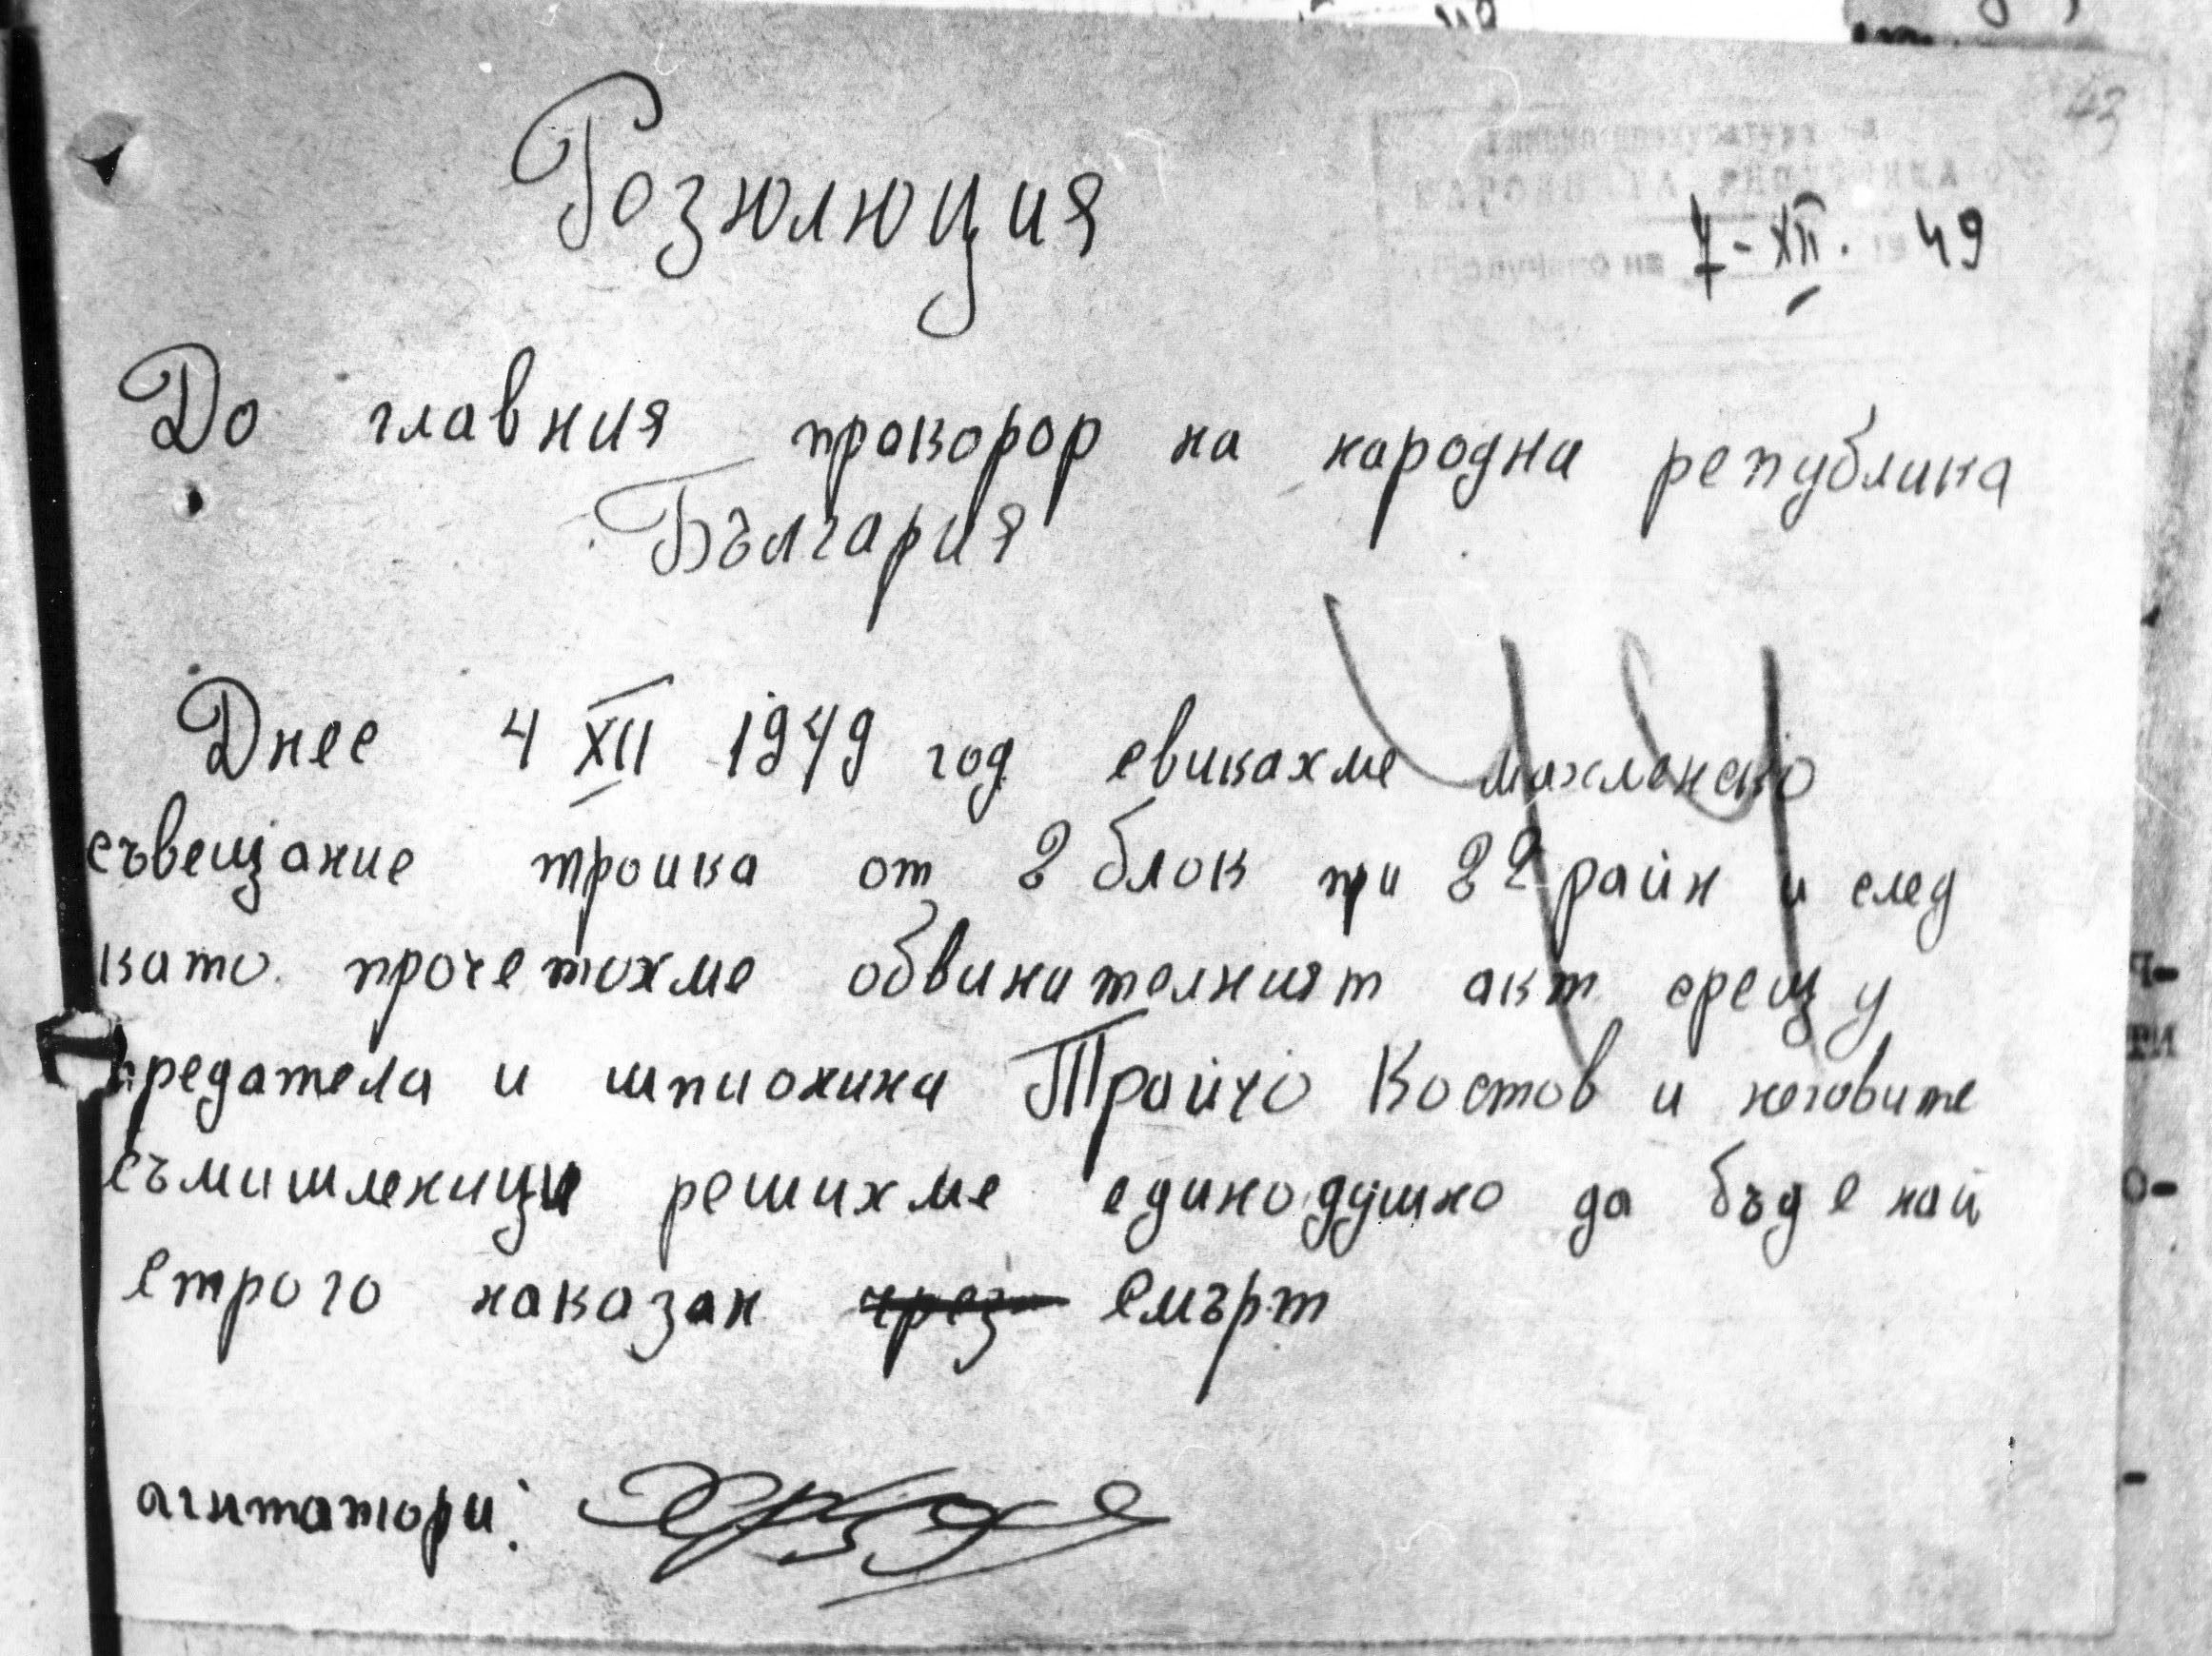 43
Розюлюция
7-XII. 49
До главния прокорор на народна република
България
Днес 4 XII 1949 год свикахме махленско
съвещание троика от 2 блок при 22 район и след
като прочетохме обвинителният акт срещу
предателя и шпионина Трайчо Костов и неговите
съмишленици решихме единодушно да бъде най
строго наказан чрез смърт
агитатори: